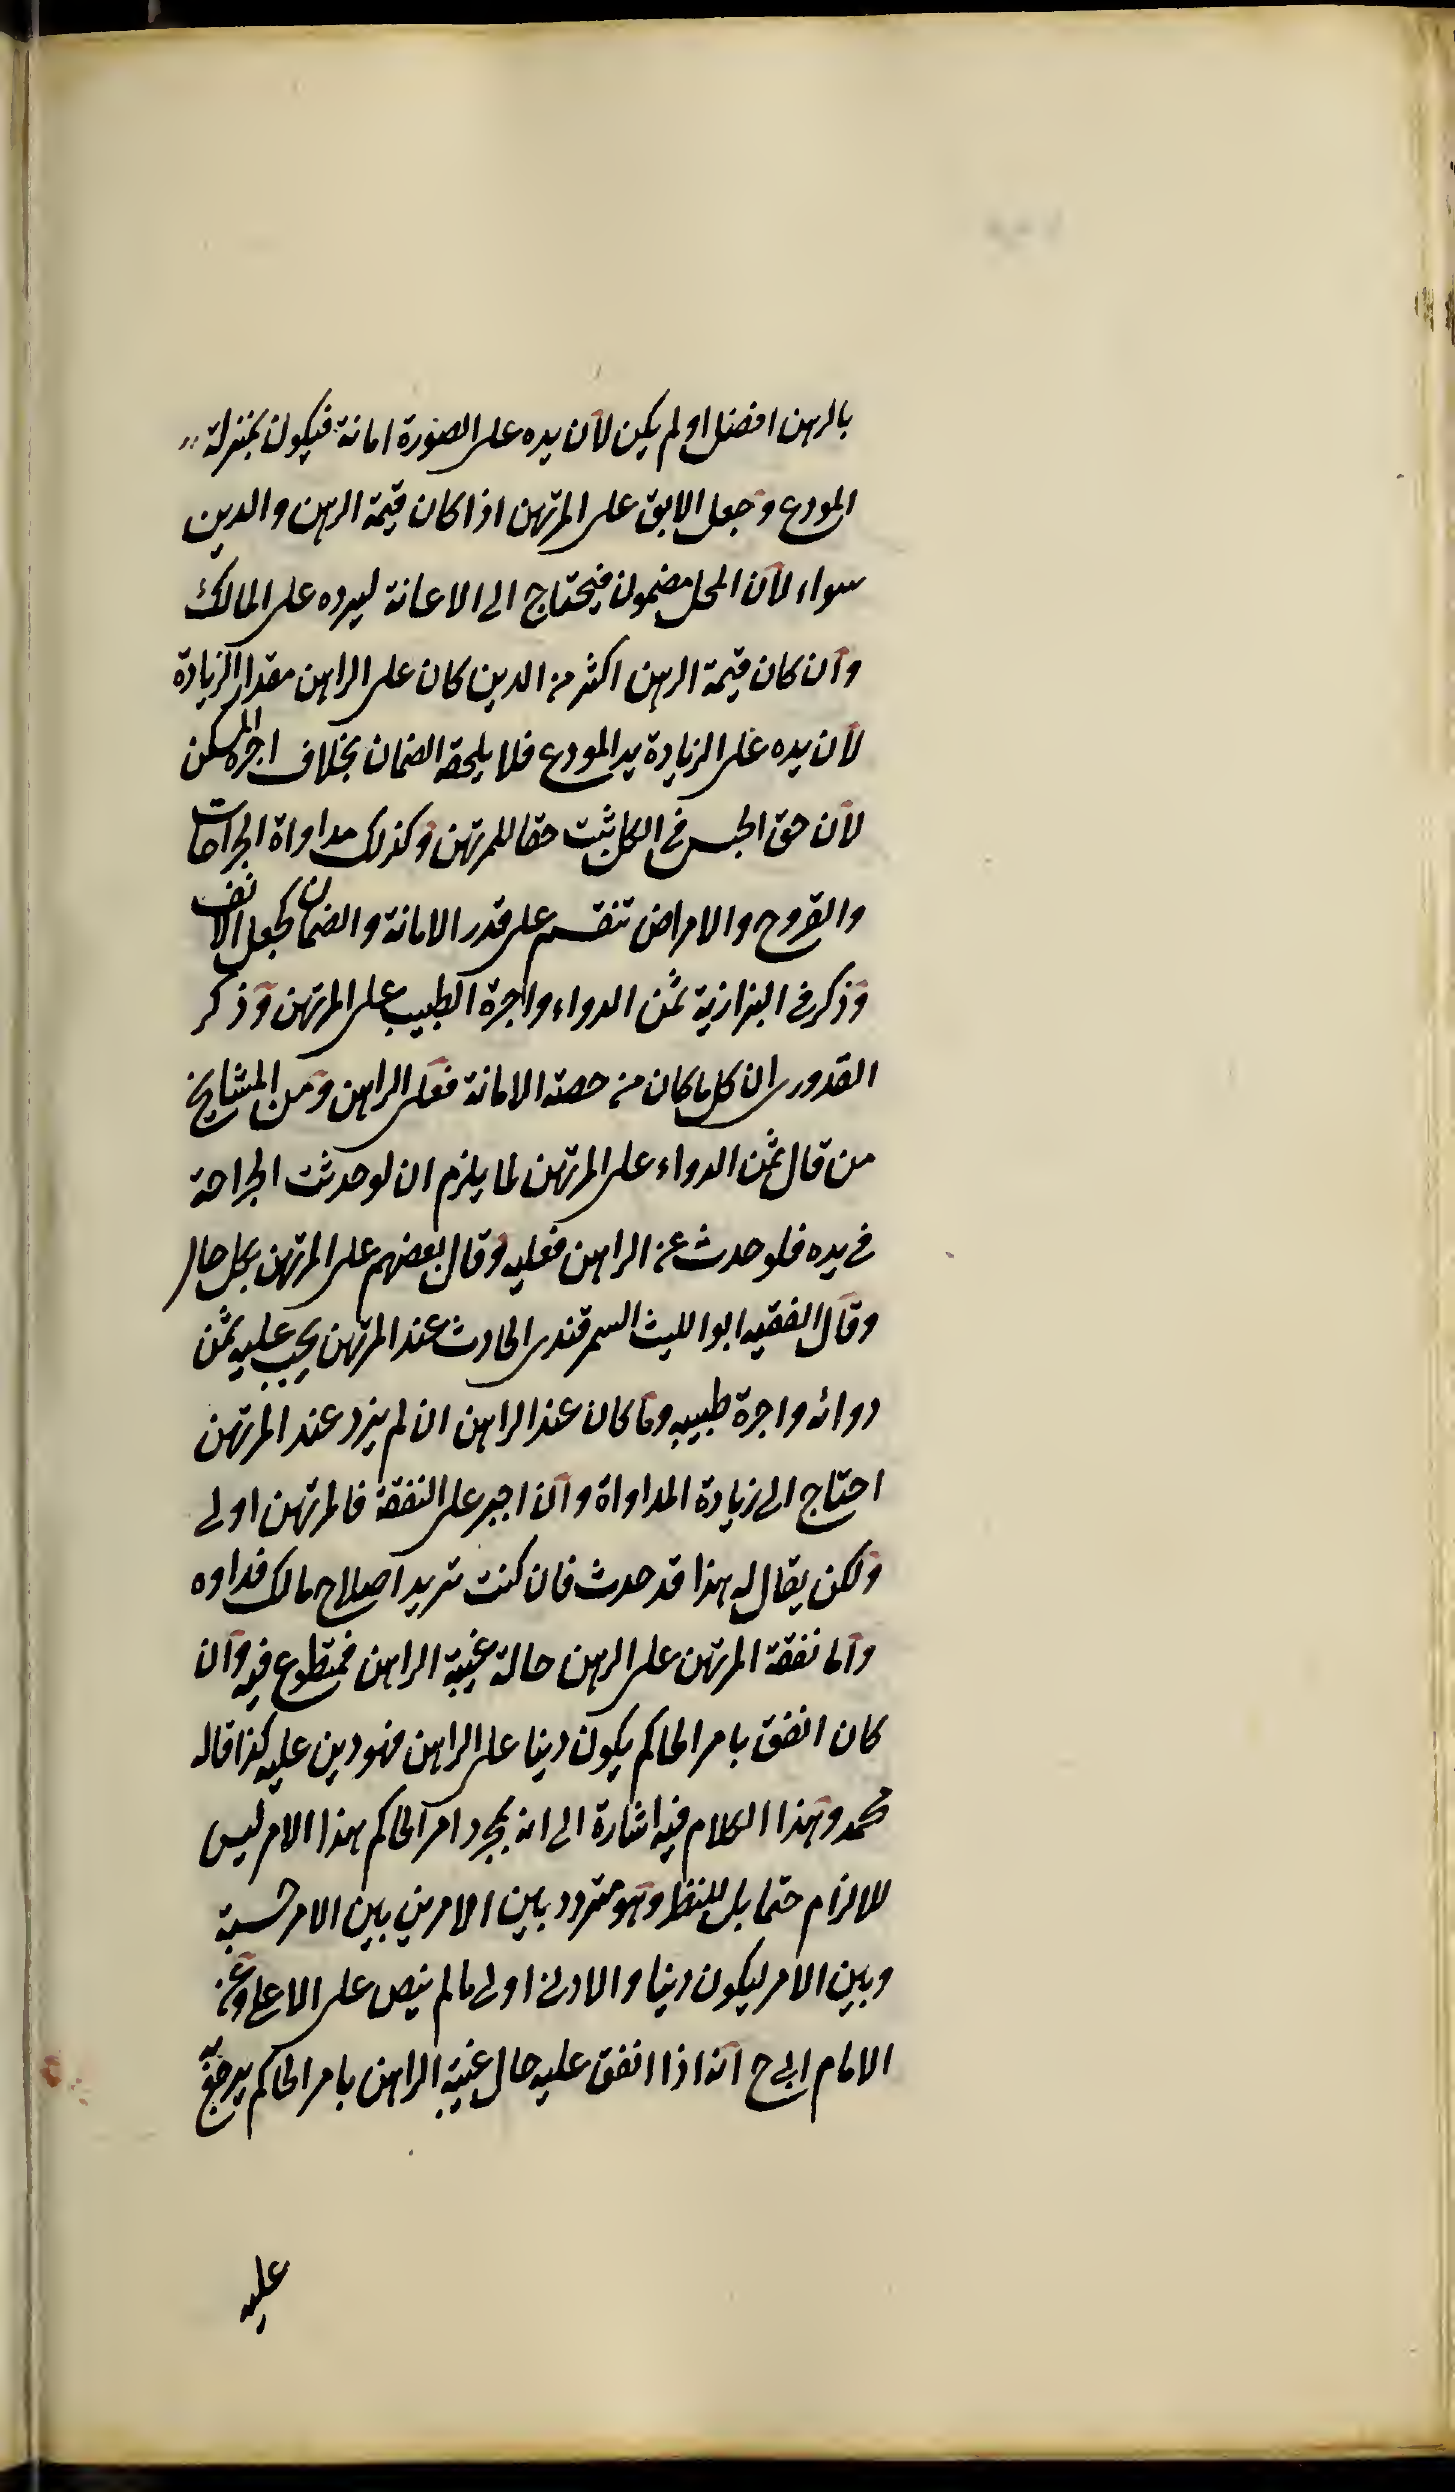 بالرهن افضل او لم يكن لان يده على الصورة امانة فيكون بمنزلة
المودع وجعل الابق على المرتهن اذا كان قيمة الرهن والدين
سواء لان المحل مضمون فيحتاج الى الاعانة ليرده على المالك
وان كان قيمة الرهن اكثر من الدين كان على الراهن مقدار الزيادة
لان يده على الزيادة يد المودع فلا يلحقه الضمان بخلاف اجرة المسكن
لان حق الحبس فى الكل ثبت حقا للمرتهن وكذلك مداواة الجراحات
والقروح والامراض تنقسم على قدر الامانة والضمان كجعل
وذكر فى البزازية ثمن الدواء واجرة الطبيب على المرتهن وذكر
القدورى ان كل ما كان من حصة الامانة فعلى الراهن ومن المشايخ
من قال ثمن الدواء على المرتهن لما يلزم ان لو حدثت الجراحة
فى يده فلو حدث عن الراهن فعليه وقال بعضهم على المرتهن بكل حال
وقال الفقيه ابو الليث السمرقندى الحادث عند المرتهن يجب عليه ثمن
دوائه واجرة طبيبه وما كان عند الراهن ان لم يزد عند المرتهن
احتاج الى زيادة المداواة وان اجبر على النفقة فالمرتهن اولى
ولكن يقال له هذا قد حدث فان كنت تريد اصلاح مالك فداوه
واما نفقة المرتهن على الرهن حالة غيبة الراهن فمتطوع فيه وان
كان انفق بامر الحاكم يكون دينا على الراهن فهو دين عليه كذا قاله
محمد وهذا الكلام فيه اشارة الى انه بمجرد امر الحاكم هذا الامر ليس
للالزام حتما بل للنظر وهو متردد بين الامرين بين الامر حسبة
وبين الامر ليكون دينا والادنى اولى ما لم ينص على الاعلى وعن
الامام ابى ح انه اذا انفق عليه حال غيبة الراهن بامر الحاكم يرجع به
عليه